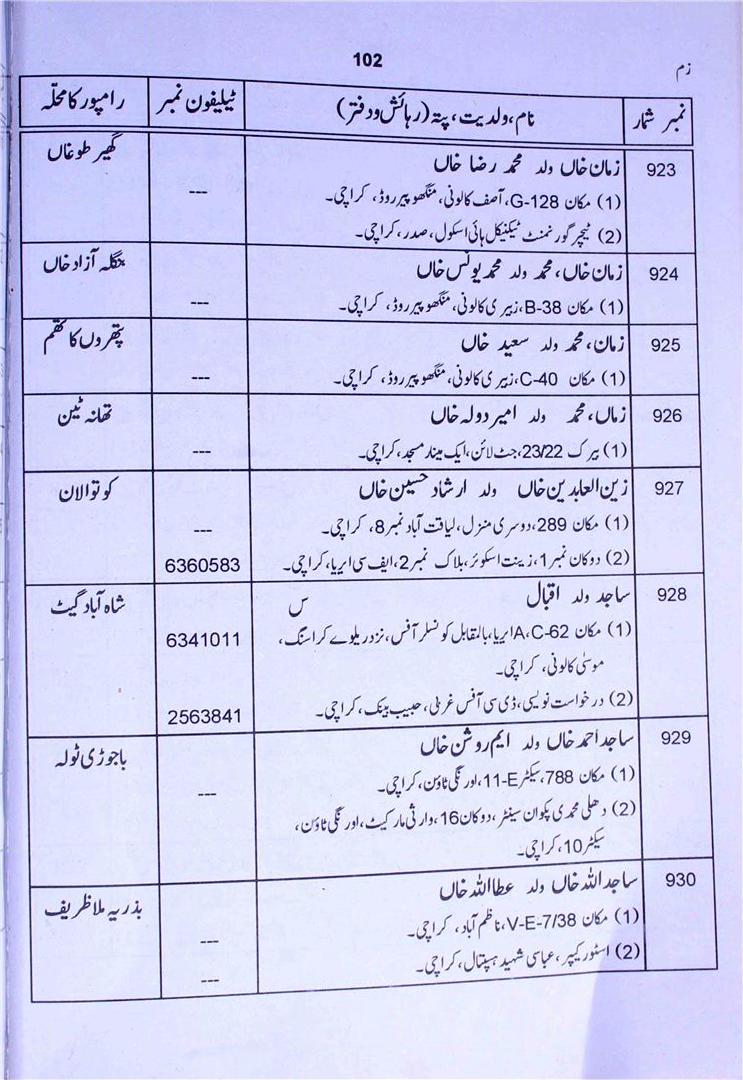 102
زم
نمبر شمار نام، ولدیت، پتہ (رہائش و دفتر) ٹیلیفون نمبر رامپور کا محلّہ
923 زمان خاں ولد محمد رضا خاں گھیر طوغاں
(1) مکان G-128، آصف کالونی، منگھو پیر روڈ، کراچی۔ ---
(2) ٹیچر گورنمنٹ ٹیکنیکل ہائی اسکول، صدر، کراچی۔
924 زمان خاں، محمد ولد محمد یونس خاں بنگلہ آزاد خاں
(1) مکان B-38، زبیری کالونی، منگھو پیر روڈ، کراچی۔ ---
925 زمان، محمد ولد سعید خاں پتھروں کا تھم
(1) مکان C-40، زبیری کالونی، منگھو پیر روڈ، کراچی۔ ---
926 زماں، محمد ولد امیر دولہ خاں تھانہ ٹین
(1) بیرک 23/22، جٹ لائن، ایک مینار مسجد، کراچی۔ ---
927 زین العابدین خاں ولد ارشاد حسین خاں کوتوالان
(1) مکان 289، دوسری منزل، لیاقت آباد نمبر 8، کراچی۔ ---
(2) دوکان نمبر 1، زینت اسکوئر، بلاک نمبر 2، ایف سی ایریا، کراچی۔ 6360583
928 ساجد ولد اقبال س شاہ آباد گیٹ
(1) مکان A،C-62 ایریا، بالمقابل کونسلر آفس، نزد ریلوے کراسنگ، 6341011
موسیٰ کالونی، کراچی۔
(2) درخواست نویسی، ڈی سی آفس غربی، حبیب بینک، کراچی۔ 2563841
929 ساجد احمد خاں ولد ایم روشن خاں باجوڑی ٹولہ
(1) مکان 788، سیکٹر 11-E، اورنگی ٹاؤن، کراچی۔ ---
(2) دھلی محمدی پکوان سینٹر، دوکان 16، وارثی مارکیٹ، اورنگی ٹاؤن،
سیکٹر 10، کراچی۔
930 ساجد اللہ خاں ولد عطا اللہ خاں بذریہ ملا ظریف
(1) مکان V-E-7/38، ناظم آباد، کراچی۔ ---
(2) اسٹور کیپر، عباسی شہید ہسپتال، کراچی۔ ---